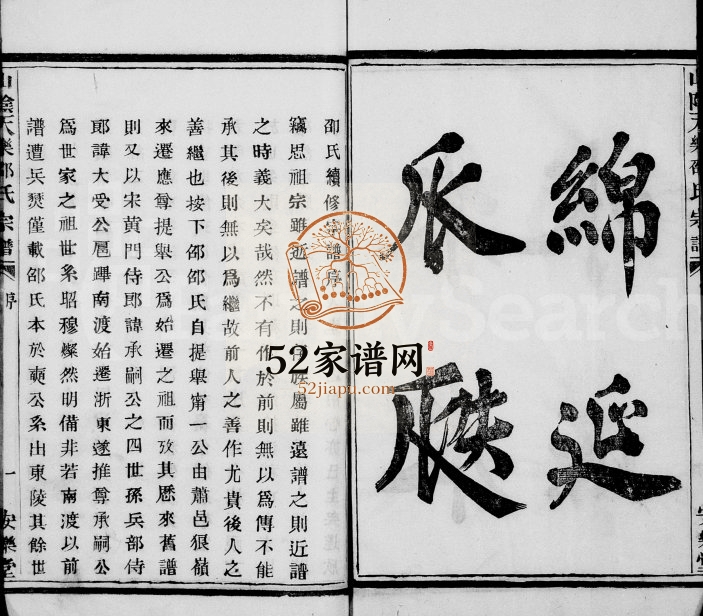 綿延
瓜瓞
山陰天樂邵氏宗譜
邵氏續修宗譜序
竊思祖宗雖近譜之則屬雖遠譜之則近譜
之時義大矣哉然不有作於前則無以為傳不能
承其後則無以為繼故前人之善作尤貴後人之
善繼也按下邵邵氏自提舉甯一公由蕭邑狠嶺
來遷應尊提舉公為始遷之祖而攷其歷來舊譜
則又以宋黄門侍郎諱承嗣公之四世孫兵部侍
郎諱大受公扈蹕南渡始遷浙東遂推尊承嗣公
為世家之祖世系昭穆燦然明備非若南渡以前
譜遭兵燹僅載邵氏本於奭公系出東陵其餘世
山陰天樂邵氏宗譜
序
一
安樂堂
52家谱网
52jiapu.com